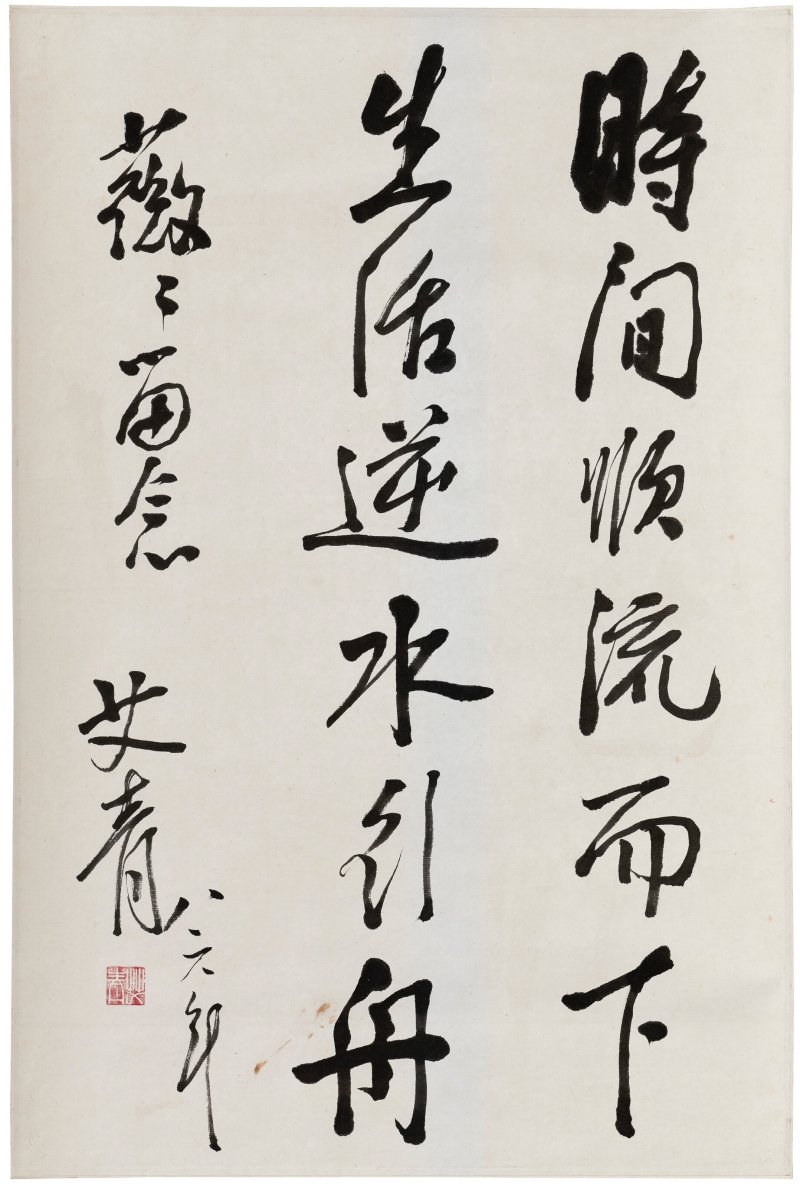 時间顺流而下
生活逆水引舟
薇〻留念
艾青
八六年